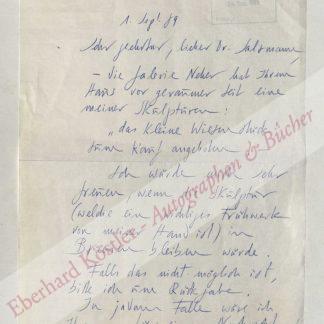 1. Sept 89
Sehr geehrter, lieber Dr. Salzmann,
– die Galerie Neher hat Ihrem
Haus vor geraumer Zeit eine
meiner Skulpturen:
„das kleine
zum Kauf angeboten
Ich würde mich sehr
freuen, wenn die Skulptur
(welche ein wichtiges Frühwerk
von meiner Hand ist) in
Bremen bleiben würde.
Falls das nicht möglich ist,
bitte ich um Rückgabe.
In jedem Falle wäre ich
Eberhard Köstler - Autographen & Bücher